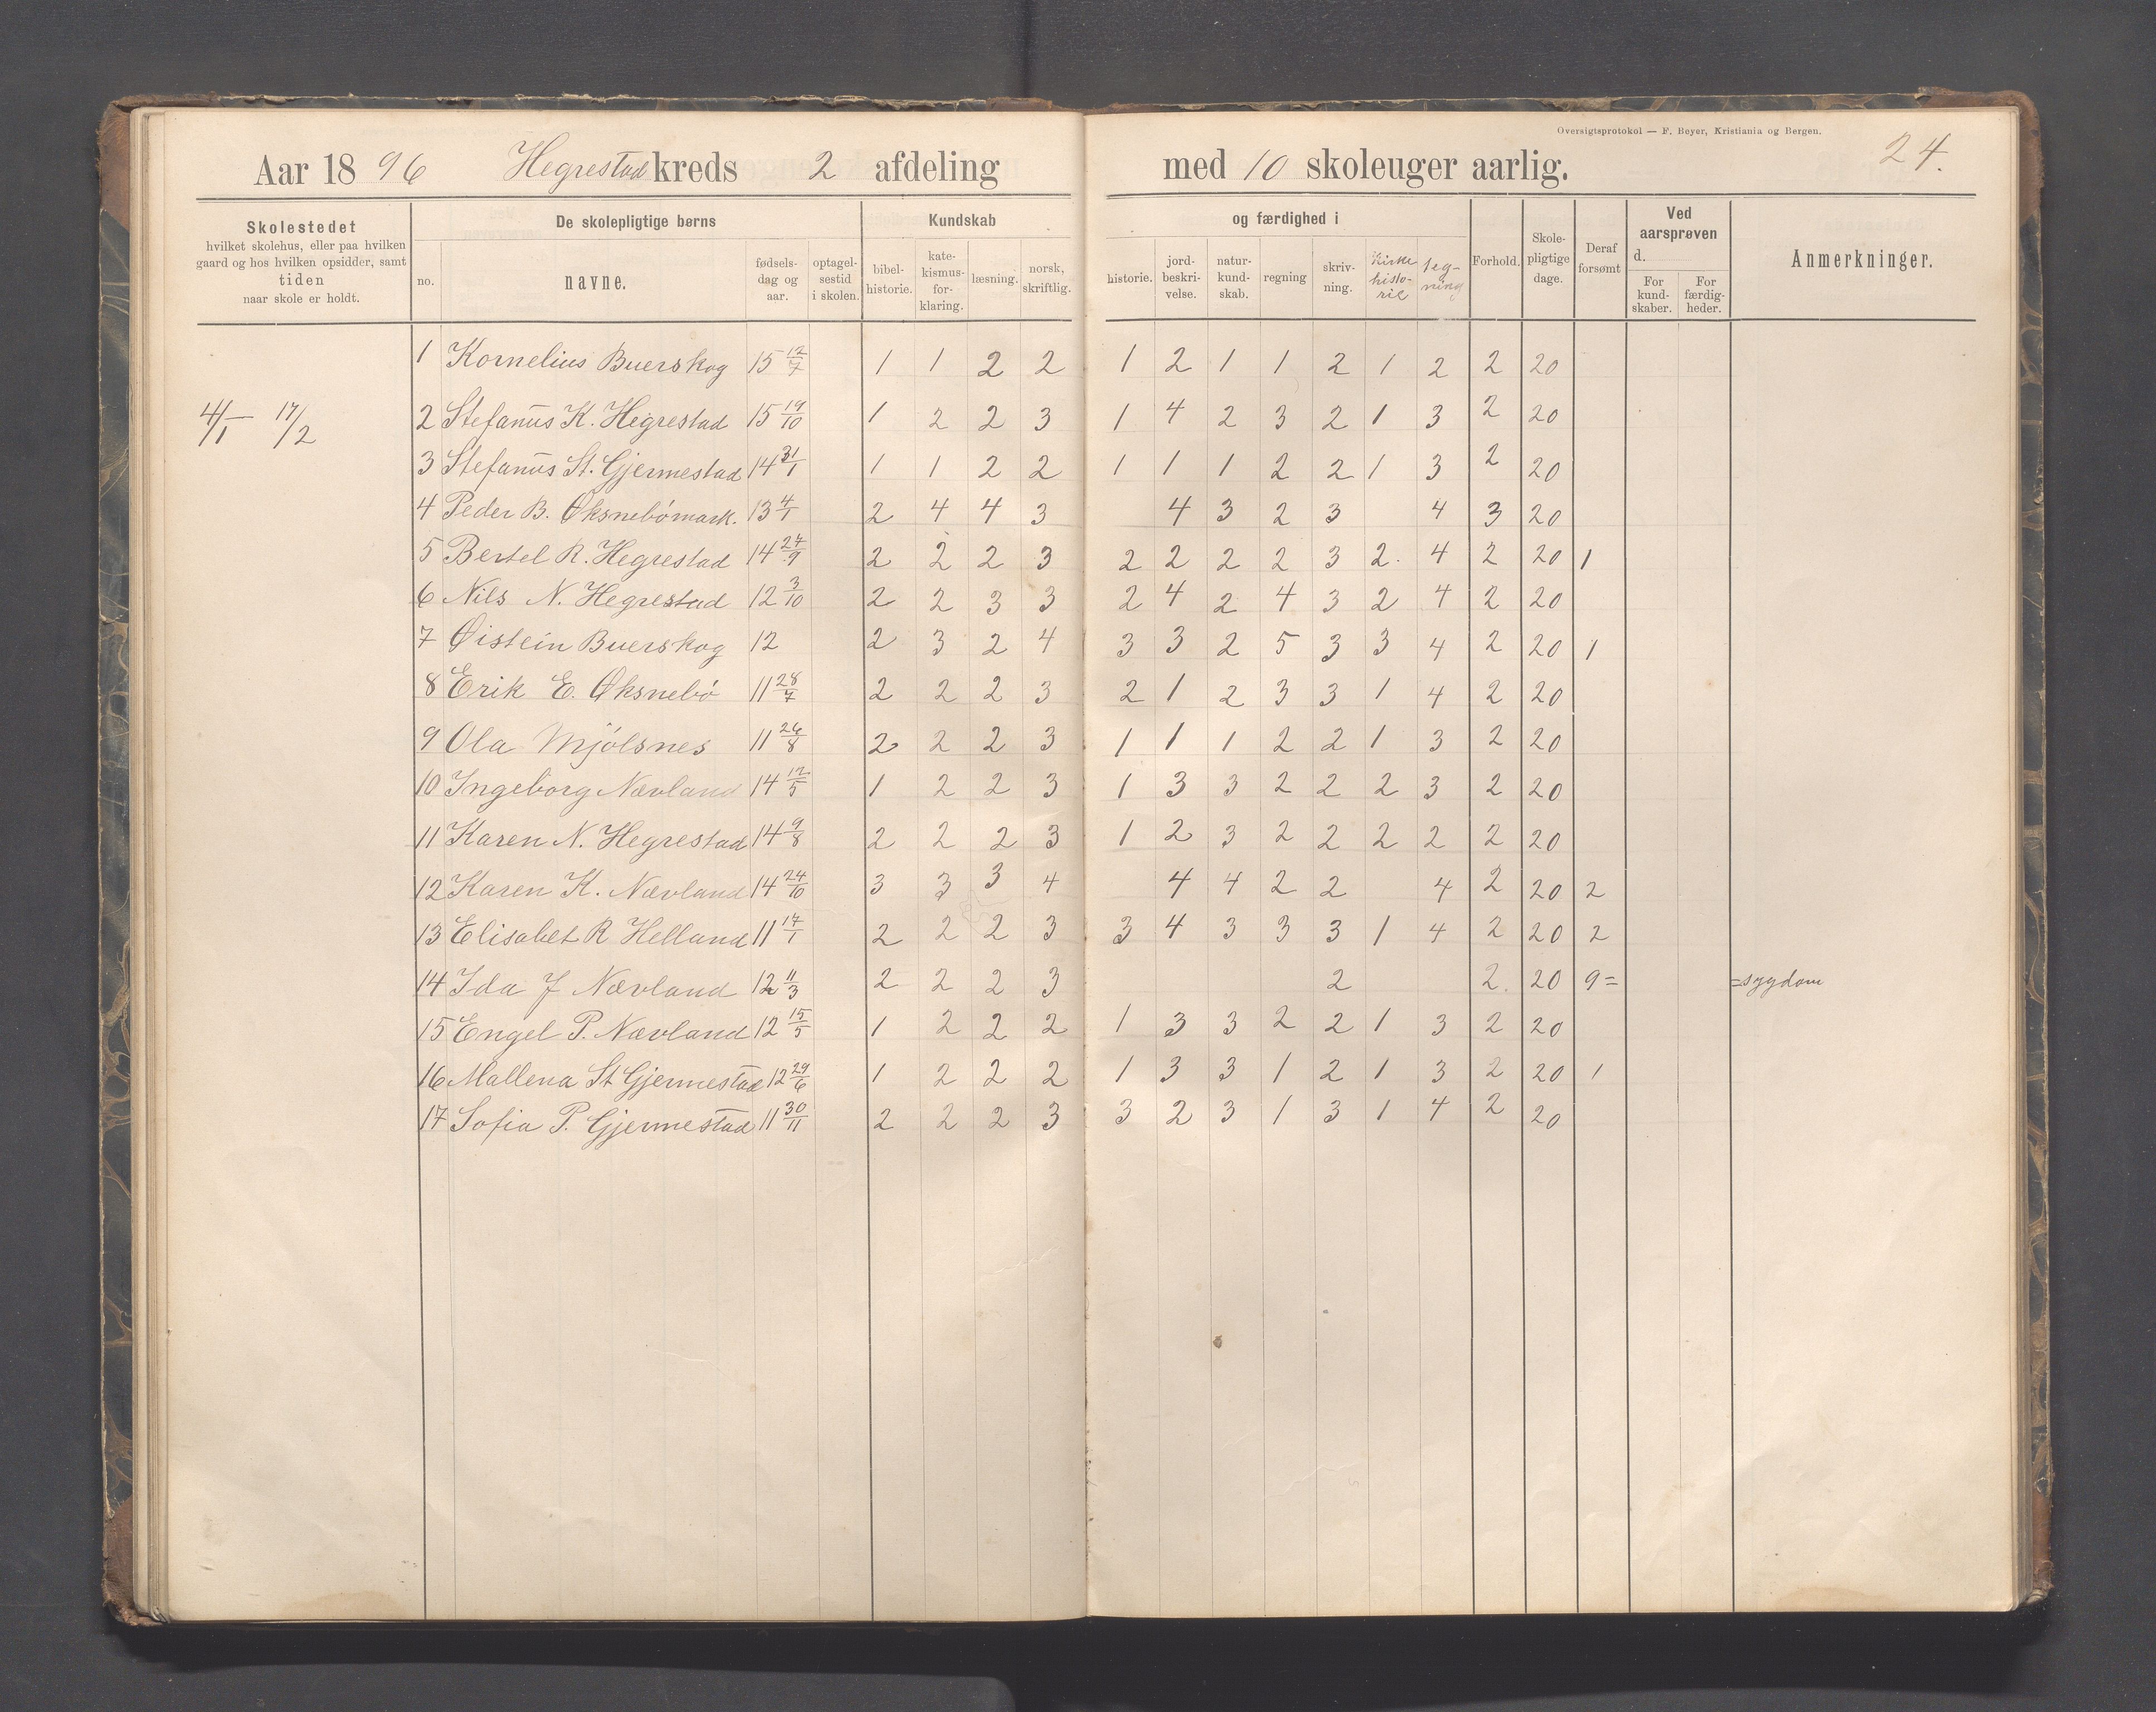 Oversigtsprotokol — F. Beyer, Kristiania og Bergen.
24.
Aar 1896 Hegrestad kreds 2 afdeling med 10 skoleuger aarlig.
Skolestedet hvilket skolehus, eller paa hvilken gaard og hos hvilken opsidder, samt tiden naar skole er holdt.
De skolepligtige børns
no. navne. fødselsdag og aar. optagelsestid i skolen.
Kundskab og færdighed i
bibelhistorie. katekismusforklaring. læsning. norsk, skriftlig. historie. jordbeskrivelse. naturkundskab. regning skrivning. Kirkehistorie tegning
Forhold. Skolepligtige dage. Deraf forsømt
Ved aarsprøven d.
For kundskaber. For færdigheder.
Anmerkninger.
1 Kornelius Buerskog 15 12/7 1 1 2 2 1 2 1 1 2 1 2 2 20
4/1 — 17/2
2 Stefanus K. Hegrestad 15 19/10 1 2 2 3 1 4 2 3 2 1 3 2 20
3 Stefanus St. Gjermestad 14 31/1 1 1 2 2 1 1 1 2 2 1 3 2 20
4 Peder B. Øksnebömark. 13 4/1 2 4 4 3 4 3 2 3 4 3 20
5 Bertel R. Hegrestad 14 24/9 2 2 2 3 2 2 2 2 3 2. 4 2 20 1
6 Nils N. Hegrestad 12 3/10 2 2 3 3 2 4 2 4 3 2 4 2 20
7 Øistein Buerskog 12 2 3 2 4 3 3 2 5 3 3 4 2 20 1
8 Erik E. Øksnebö 11 28/7 2 2 2 3 2 1 2 3 3 1 4 2 20
9 Ola Mjölsnes 11 26/8 2 2 2 3 1 1 1 2 2 1 3 2 20
10 Ingeborg Nævland 14 12/5 1 2 2 3 1 3 3 2 2 2 3 2 20
11 Karen N. Hegrestad 14 9/8 2 2 2 3 1 2 3 2 2 2 2 2 20
12 Karen K. Nævland 14 24/10 3 3 3 4 4 4 2 2 4 2 20 2
13 Elisabet R Helland 11 17/1 2 2 2 3 3 4 3 3 3 1 4 2 20 2
14 Ida J Nævland 12 11/3 2 2 2 3 2 2. 20 9= =sygdom
15 Engel P. Nævland 12 15/5 1 2 2 2 1 3 3 2 2 1 3 2 20
16 Mallena St Gjermestad 12 29/6 1 2 2 2 1 3 3 1 2 1 3 2 20 1
17 Sofia P. Gjermestad 11 30/11 2 2 2 3 3 2 3 1 3 1 4 2 20